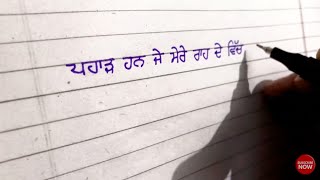 ਪਹਾੜ ਹਨ ਜੇ ਮੇਰੇ ਰਾਹ ਦੇ ਵਿੱਚ
SUBSCRIBE
NOW